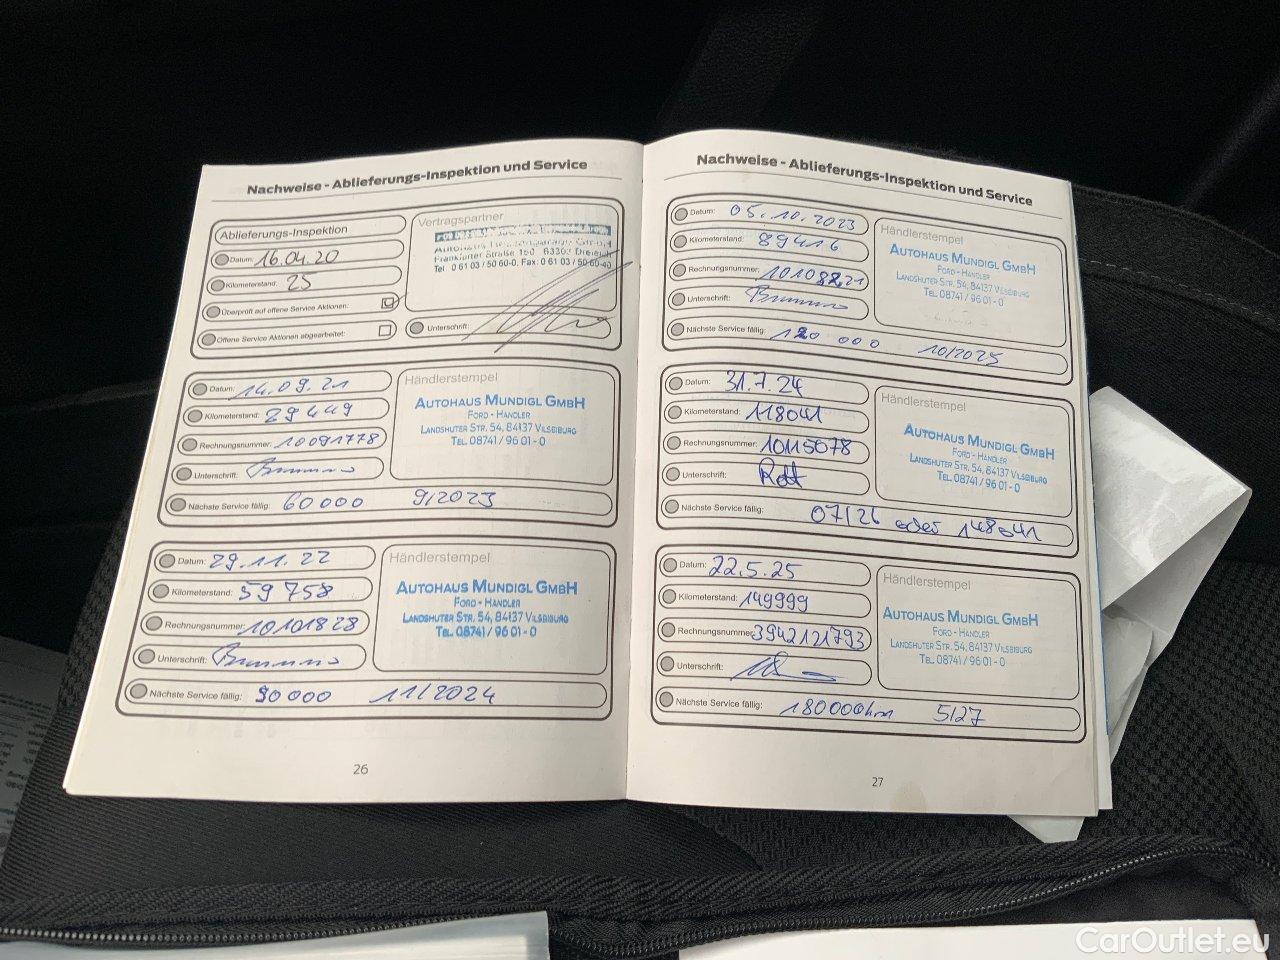 Nachweise - Ablieferungs-Inspektion und Service
Ablieferungs-Inspektion
Datum: 16.04.20
Kilometerstand: 25
Überprüft auf offene Service Aktionen:
Offene Service Aktionen abgearbeitet:
Vertragspartner
Frankfurter Straße 150 63303 Dreieich
Tel. 0 61 03 / 50 60-0, Fax: 0 61 03 / 50 60-40
Unterschrift:
Datum: 14.09.21
Kilometerstand: 29449
Rechnungsnummer: 10091778
Unterschrift:
Nächste Service fällig: 60000 9/2023
Händlerstempel
AUTOHAUS MUNDIGL GMBH
FORD - HÄNDLER
LANDSHUTER STR. 54, 84137 VILSBIBURG
TEL. 08741 / 96 01 - 0
Datum: 29.11.22
Kilometerstand: 59758
Rechnungsnummer: 10101828
Unterschrift:
Nächste Service fällig: 90000 11/2024
Händlerstempel
AUTOHAUS MUNDIGL GMBH
FORD - HÄNDLER
LANDSHUTER STR. 54, 84137 VILSBIBURG
TEL. 08741 / 96 01 - 0
26
Nachweise - Ablieferungs-Inspektion und Service
Datum: 05.10.2023
Kilometerstand: 89416
Rechnungsnummer: 10108221
Unterschrift:
Nächste Service fällig: 120 000 10/2025
Händlerstempel
AUTOHAUS MUNDIGL GMBH
FORD - HÄNDLER
LANDSHUTER STR. 54, 84137 VILSBIBURG
TEL. 08741 / 96 01 - 0
Datum: 31.7.24
Kilometerstand: 118041
Rechnungsnummer: 10115078
Unterschrift:
Nächste Service fällig: 07/26 oder 148041
Händlerstempel
AUTOHAUS MUNDIGL GMBH
FORD - HÄNDLER
LANDSHUTER STR. 54, 84137 VILSBIBURG
TEL. 08741 / 96 01 - 0
Datum: 22.5.25
Kilometerstand: 149999
Rechnungsnummer: 3942121793
Unterschrift:
Nächste Service fällig: 180000km 5/27
Händlerstempel
AUTOHAUS MUNDIGL GMBH
FORD - HÄNDLER
LANDSHUTER STR. 54, 84137 VILSBIBURG
TEL. 08741 / 96 01 - 0
27
CarOutlet.eu